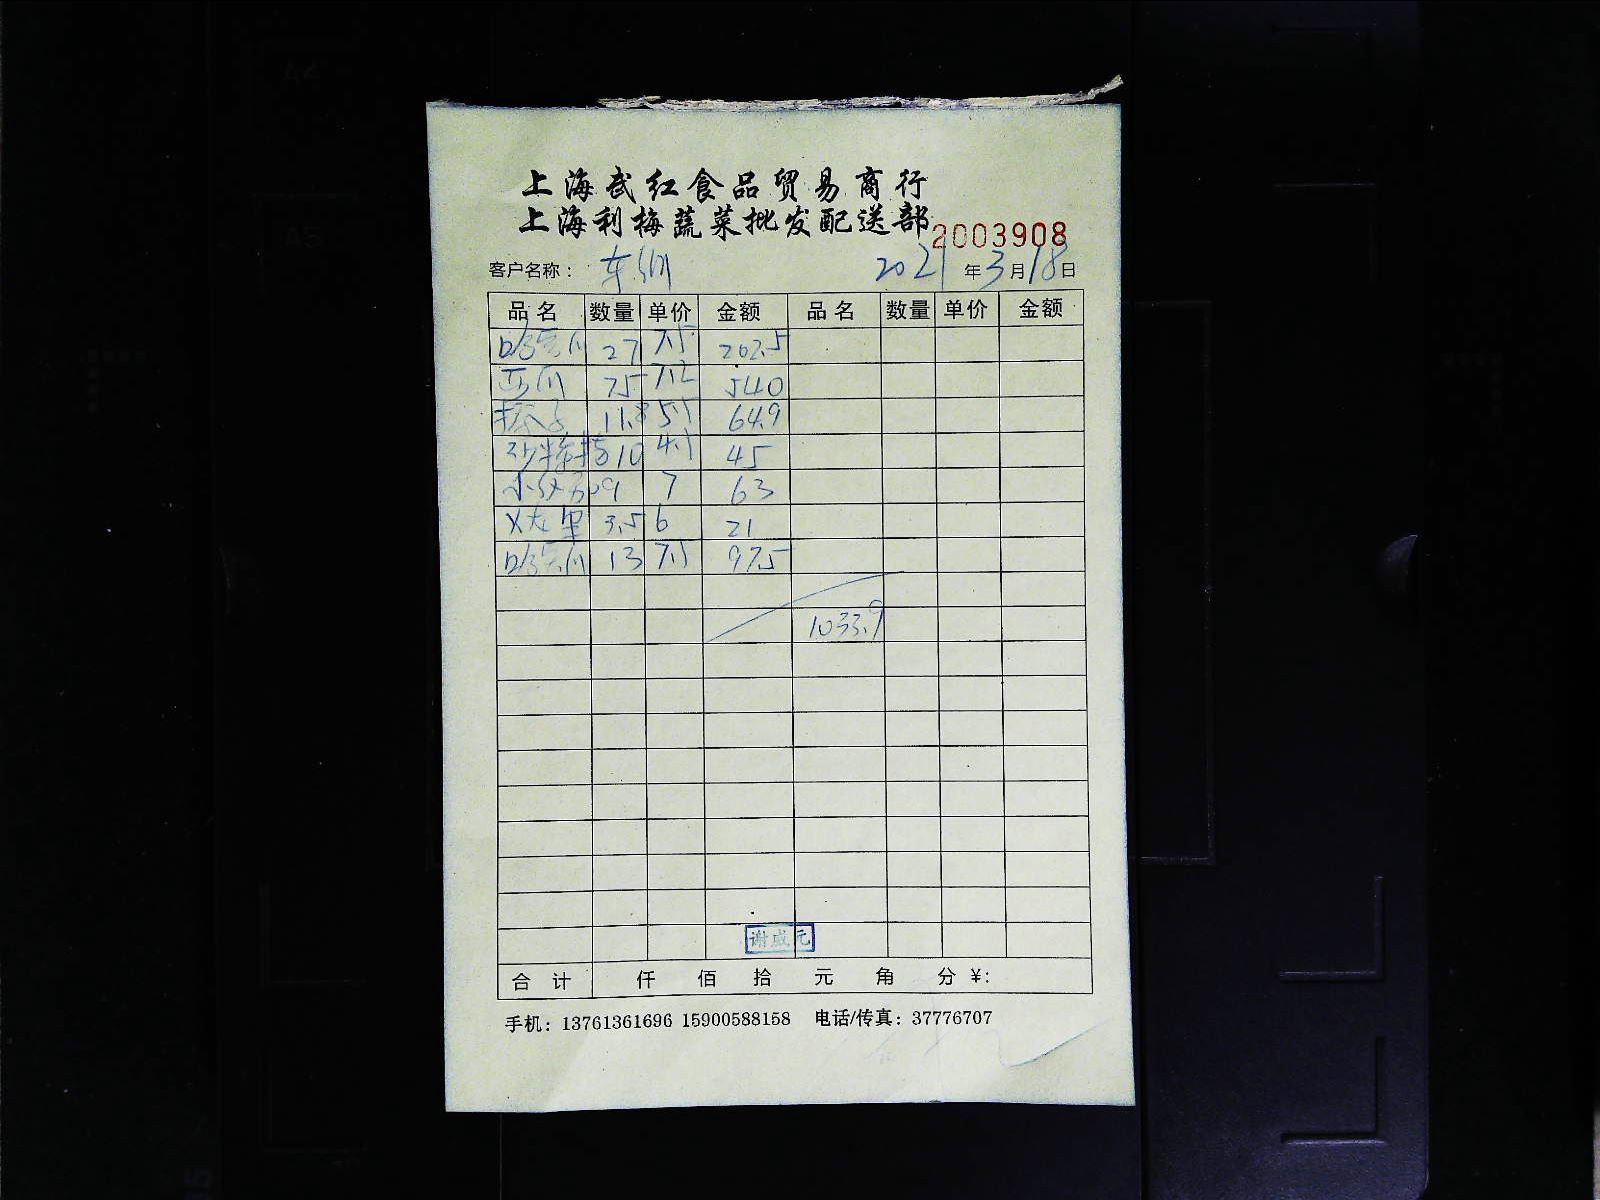 上海武红食品贸易商行
上海利梅蔬菜批发配送部
2003908
客户名称： 2021年3月18日
品名 数量 单价 金额 品名 数量 单价 金额
27 7.5 202.5
75 7.2 540
11.8 5.5 64.9
10 4.5 45
9 7 63
3.5 6 21
13 7.5 97.5
1033.9
谢成元
合计 仟 佰 拾 元 角 分 ¥:
手机：13761361696 15900588158 电话/传真：37776707